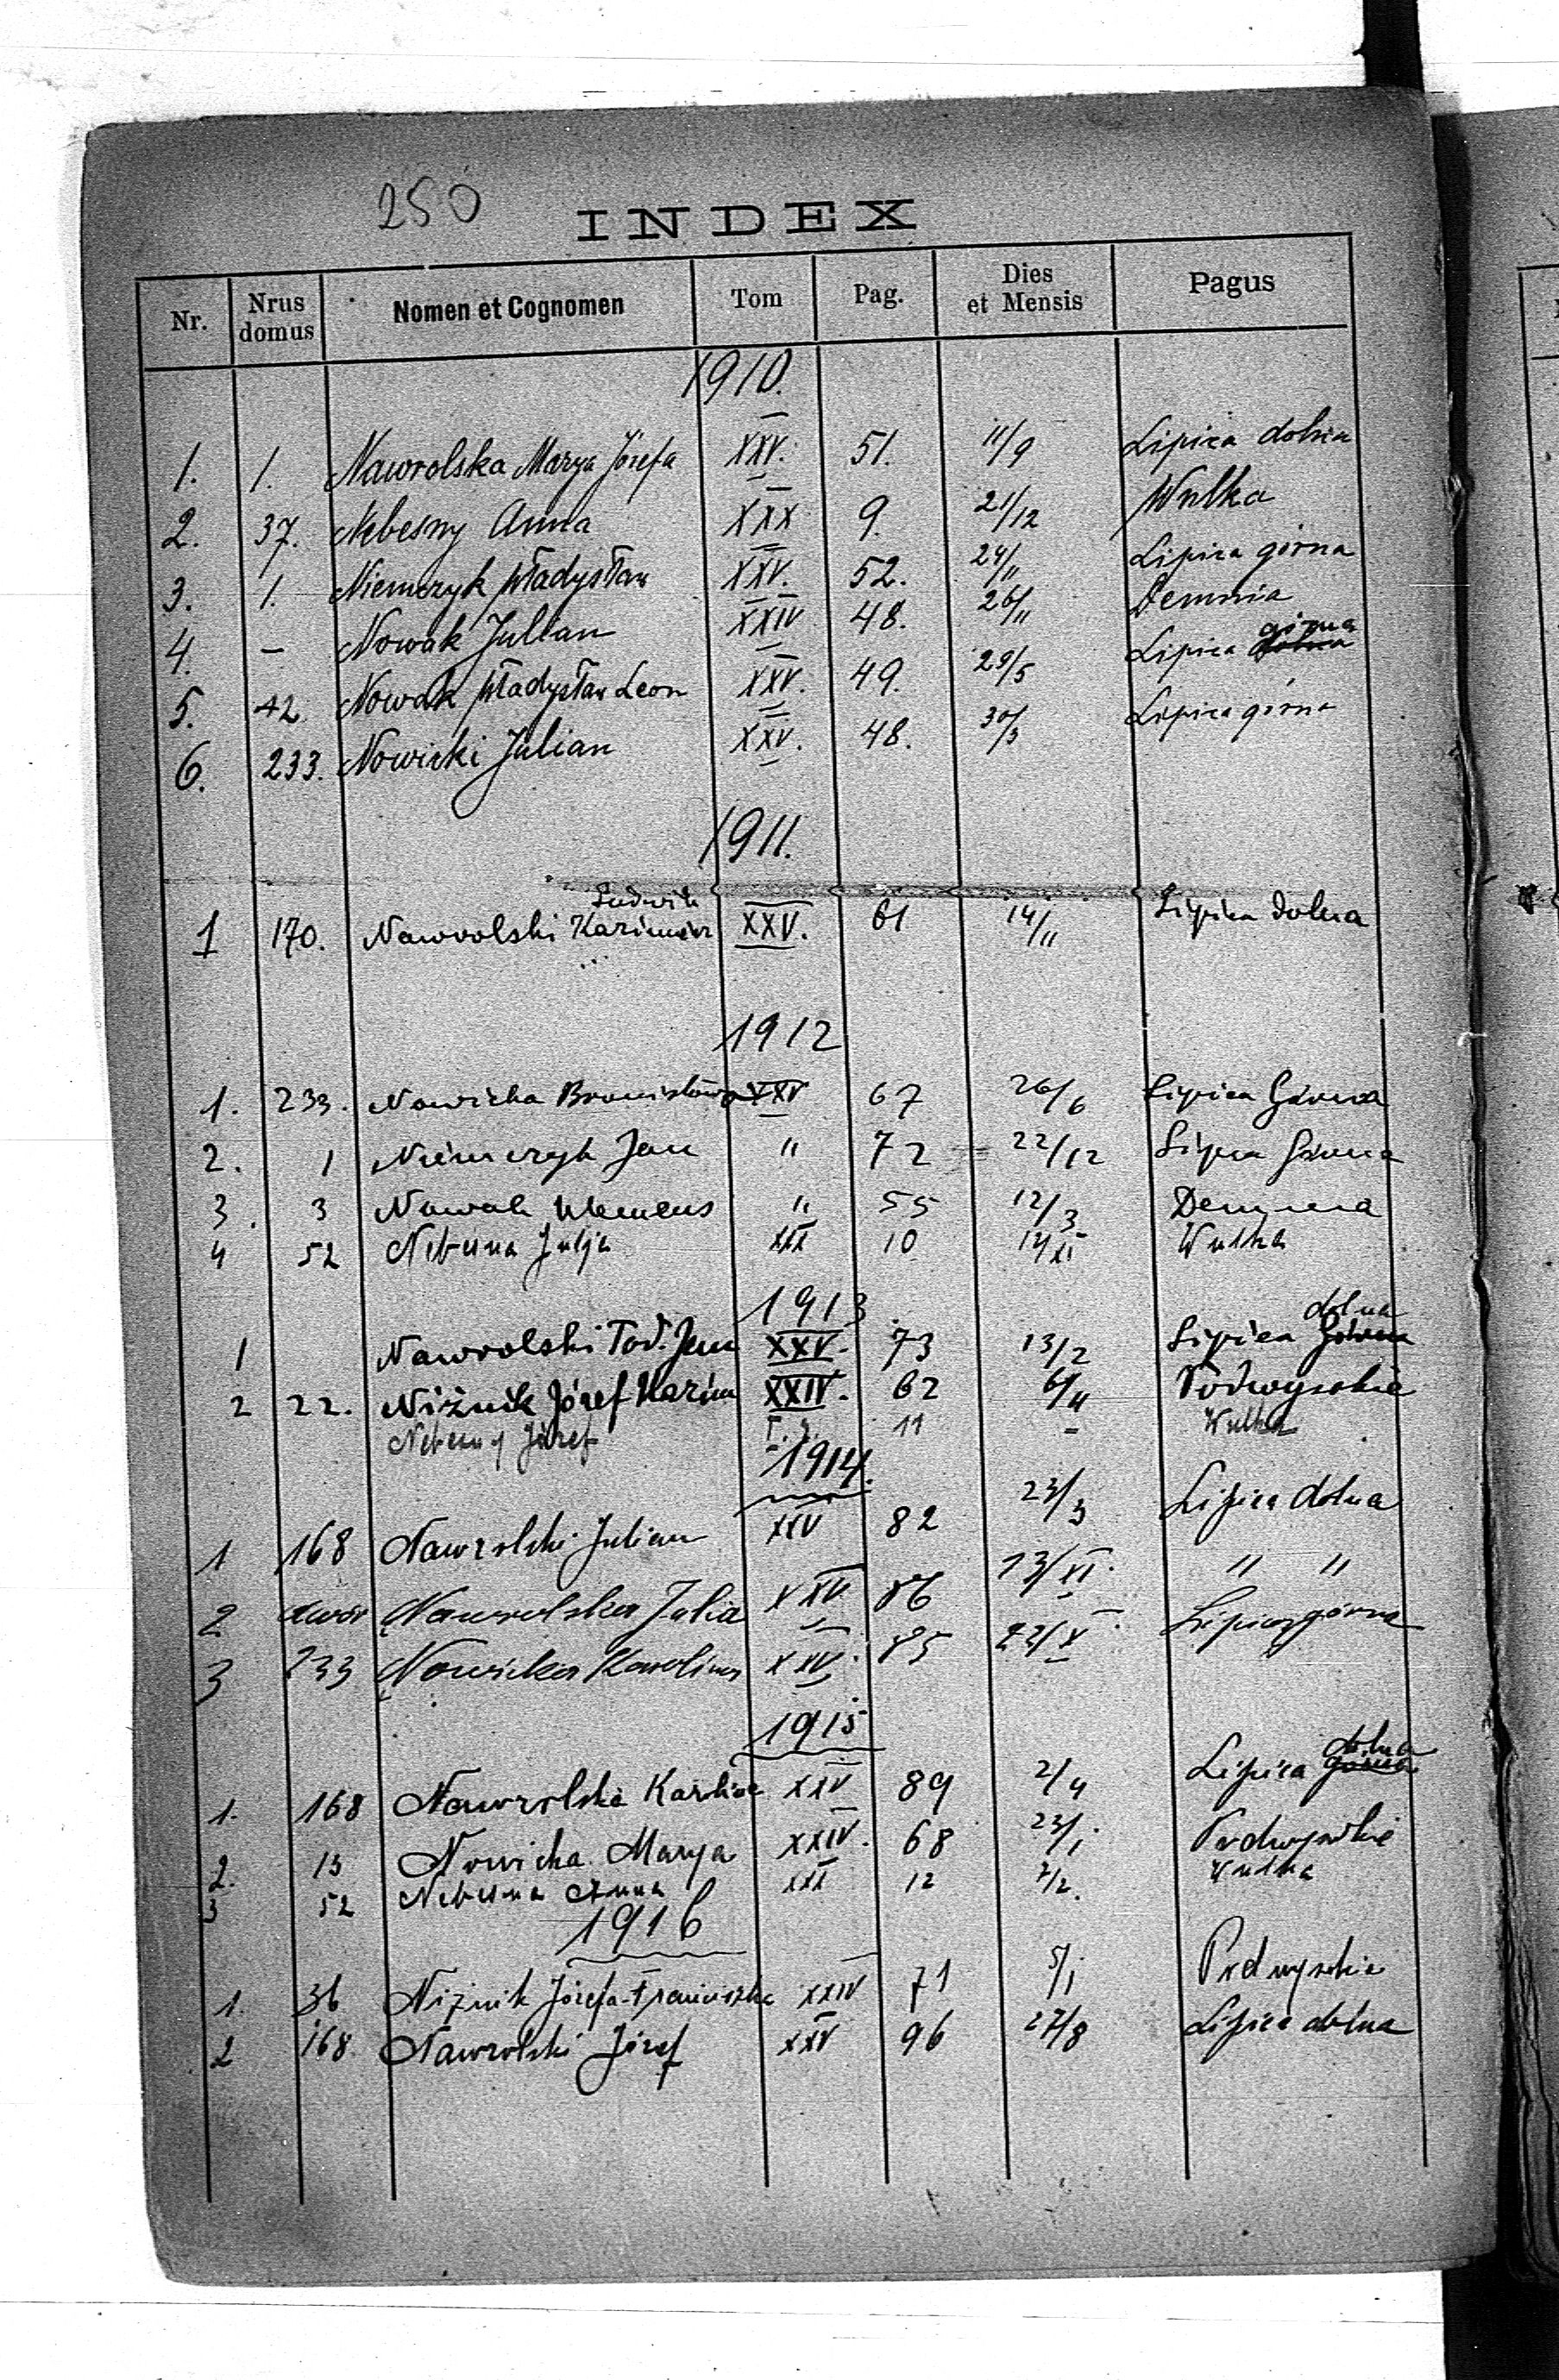 250
INDEX
Nr. Nrus domus Nomen et Cognomen Tom Pag. Dies et Mensis Pagus
1910.
1. 1. Nawrolska Marya Józefa XXV. 51. 11/9 Lipica dolna
2. 37. Nebesny Anna XXX 9. 21/12 Wulka
3. 1. Niemczyk Władysław XXV. 52. 24/11 Lipica górna
4. - Nowak Julian XXIV 48. 26/11 Demnia
5. 42. Nowak Władysław Leon XXV. 49. 29/5 Lipica górna
6. 233. Nowicki Julian XXV. 48. 30/3 Lipica górna
1911.
1 170. Nawrolski Kazimierz Ludwik XXV. 61 14/11 Lipica dolna
1912
1. 233. Nowicka Bronisława XXV 67 26/6 Lipica Górna
2. 1 Niemczyk Jan " 72 22/12 Lipica Górna
3. 3 Nowak Klemens " 55 12/3 Demnia
4 52 Nebesna Julja XXX 10 14/XI Wulka
1913
1 Nawrolski Jan XXV. 73 13/2 Lipica dolna
2 22. Niżnik Józef Kazim XXIV. 62 6/11 Podwysokie
Nebesny Józef 11 - Wulka
1914.
1 168 Nawrolski Julian XXV 82 23/3 Lipica dolna
2 dwór Nawrolska Julia XXV 86 13/XI. " "
3 233 Nowicka Karolina XXV. 85 22/X Lipica górna
1915
1. 168 Nawrolska Karolina XXV 89 2/4 Lipica dolna
2. 13 Nowicka Marya XXIV. 68 23/1 Podwysokie
3 52 Nebesna Anna XXX 12 7/2. Wulka
1916
1. 36 Niżnik Józefa Franciszka XXIV 71 5/1 Podwysokie
2 168. Nawrolski Józef XXV 96 27/8 Lipica dolna